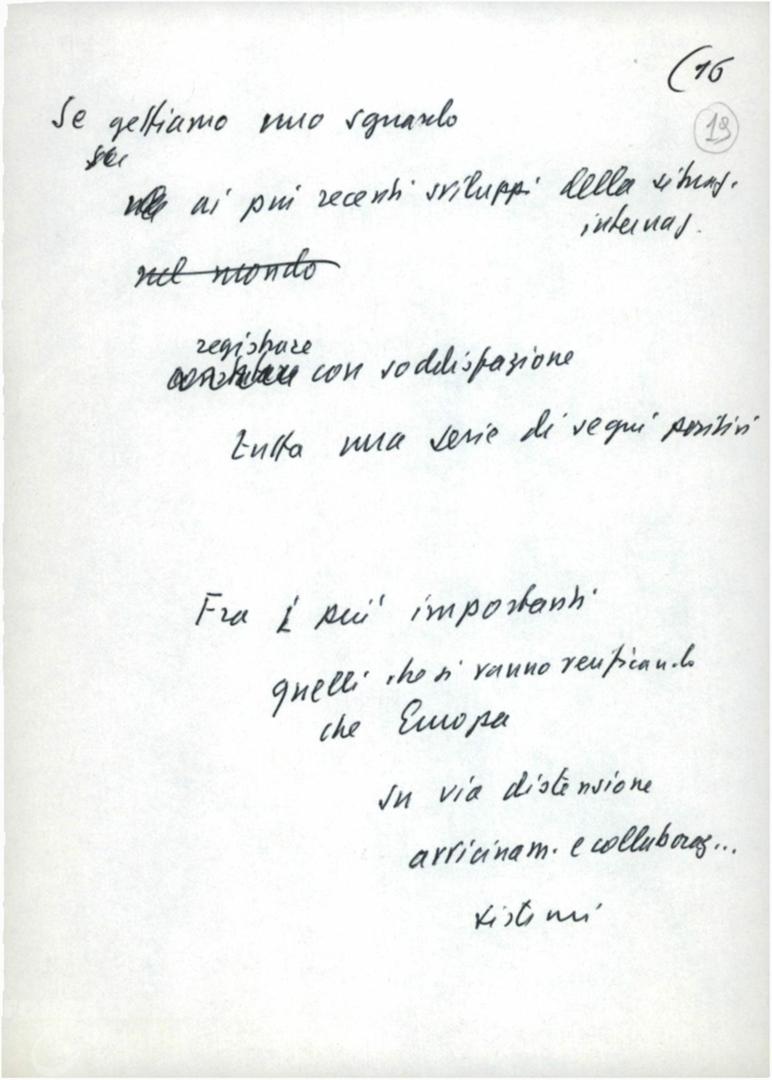 (16
19
Se gettiamo uno sguardo
su
ai più recenti sviluppi della situaz.
internaz.
nel mondo
registrare
constatare con soddisfazione
tutta una serie di segni positivi
Fra i più importanti
quelli che si vanno verificando
che Europa
su via distensione
avvicinam. e collaboraz...
sistemi